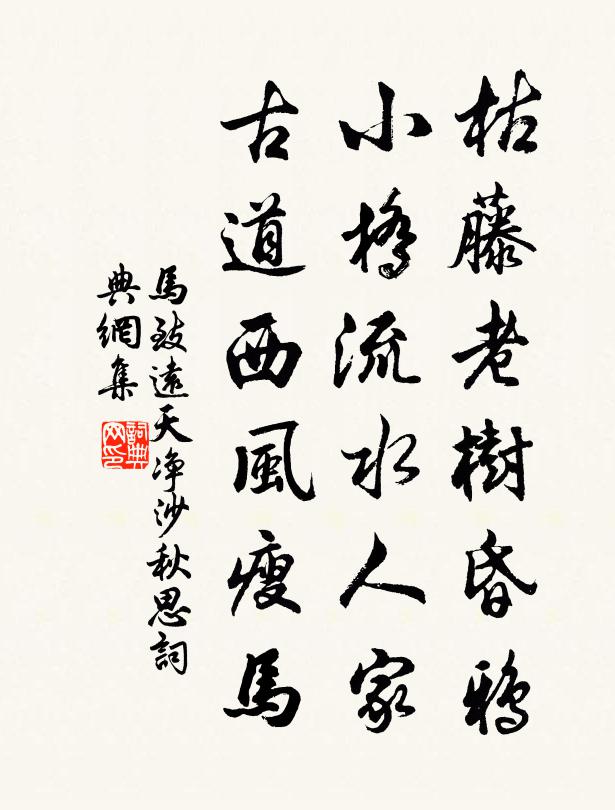 枯藤老樹昏鴉
小橋流水人家
古道西風瘦馬
馬致遠天净沙秋思詞
典網集
詞典網印